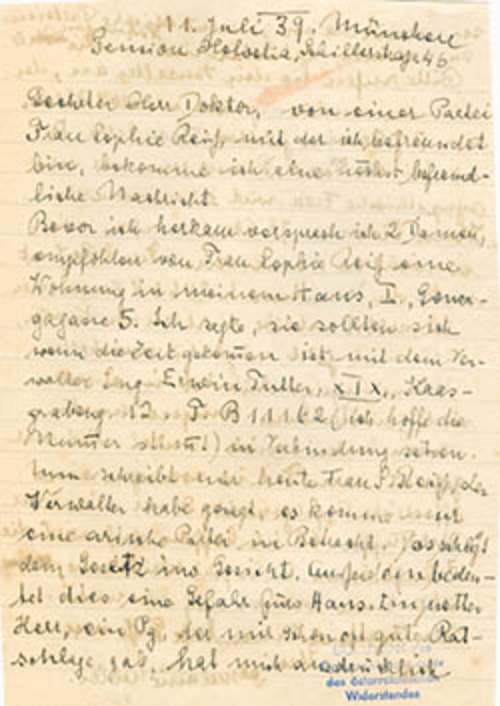 11. Juli 39. München
Pension Helvetia, Schillerstraße 46
Geehrter Herr Doktor, von einer Partei
Frau Sophie Reiß, mit der ich befreundet
bin, bekomme ich eine höchst befremd-
liche Nachricht.
Bevor ich herkam versprach ich 2 Damen,
empfohlen von Frau Sophie Reiß eine
Wohnung in meinem Haus, I., Gonza-
gagasse 5. Ich sagte, sie sollten sich
wenn die Zeit gekommen ist mit dem Ver-
walter Ing. Erwin XIX., Kaas-
grabeng. 12 (ich hoffe die
Nummer stimmt!) in Verbindung setzen.
Nun schreibt mir heute Frau S. Reiß, der
Verwalter habe gesagt, es komme nur
eine arische Partei in Betracht. Das schlägt
dem Gesetz ins Gesicht. Außerdem bedeu-
tet dies eine Gefahr fürs Haus. Ein netter
Herr, ein Pg., der mir schon oft gute Rat-
schläge gab, hat mich ausdrücklich
des österreichischen
Widerstandes